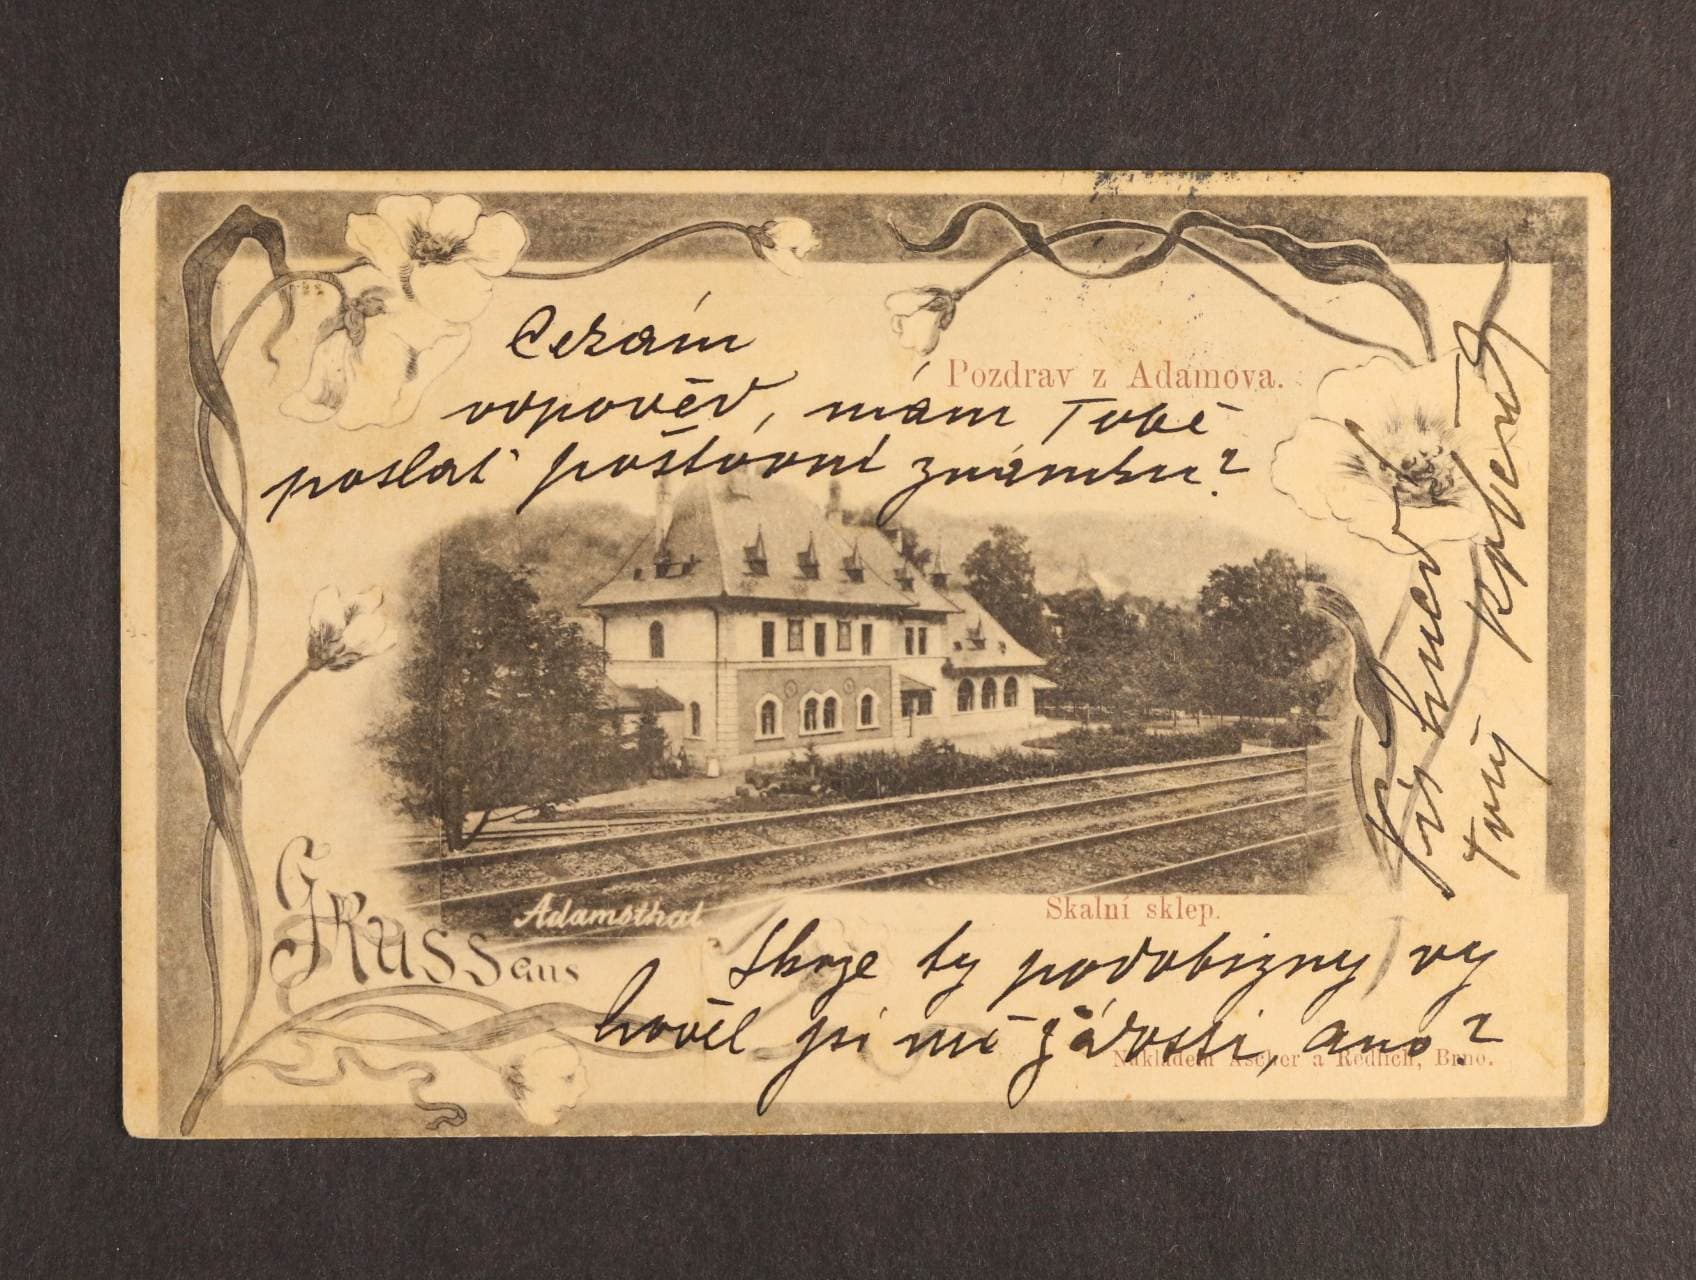 Pozdrav z Adamova.
odpověď, mám Tobě
poslat poštovní známku?
Gruss aus
Adamsthal
Skalní sklep.
Skrze ty podobizny vy
hověl jsi mé žádosti, ano?
Nákladem Ascher a Redlich, Brno.
Piš hned
Tvůj